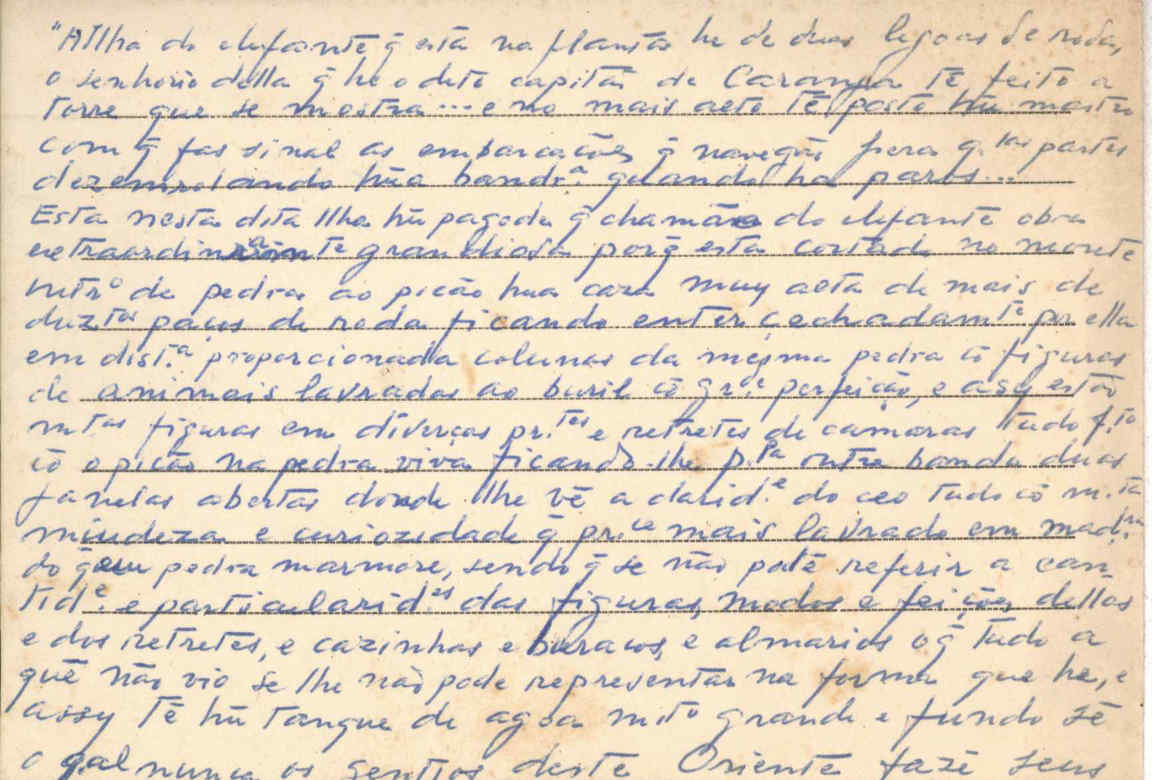 "A Ilha do elefante q̃ està na planta he de duas legoas de roda,
o senhorio della q̃ he o dito capitão de Caranja tẽ feito a
torre que se mostra... e no mais alto tẽ posto hũ mastro
com q̃ fas sinal as embarcações q̃ navegão pera q.tas partes
dezenrolando hũa bandr.a quando ha paros...
Esta nesta dita Ilha hũ pagode q̃ chamão do elefante obra
extraordinariamte grandiosa porq̃ està cortado no monte
intr.o de pedra ao picão hua caza muy alta de mais de
duz.tos paços de roda ficando entercechadamte por ella
em dist.a proporcionada colunas da mesma pedra cõ figuras
de animais lavrados ao buril cõ gr.e perfeição, e assy estão
mtas figuras em diverças pr.tes e retretes de camaras tudo f.to
cõ o picão na pedra viva ficando-lhe p.ra outra banda duas
janelas abertas donde lhe vẽ a clarid.e do ceo tudo cõ m.ta
miudeza e curiozidade q̃ pr.ce mais lavrado em madr.a
do q̃ em pedra marmore, sendo q̃ se não pode referir a can-
tid.e e particularid.es das figuras, modos e feições dellas
e dos retretes, e cazinhas e buracos, e almarios o q̃ tudo a
quẽ não vio se lhe não pode representar na forma que he, e
assy tẽ hũ tanque de agoa mto grande e fundo sẽ
o qal nunca os gentios deste Oriente fazẽ seus